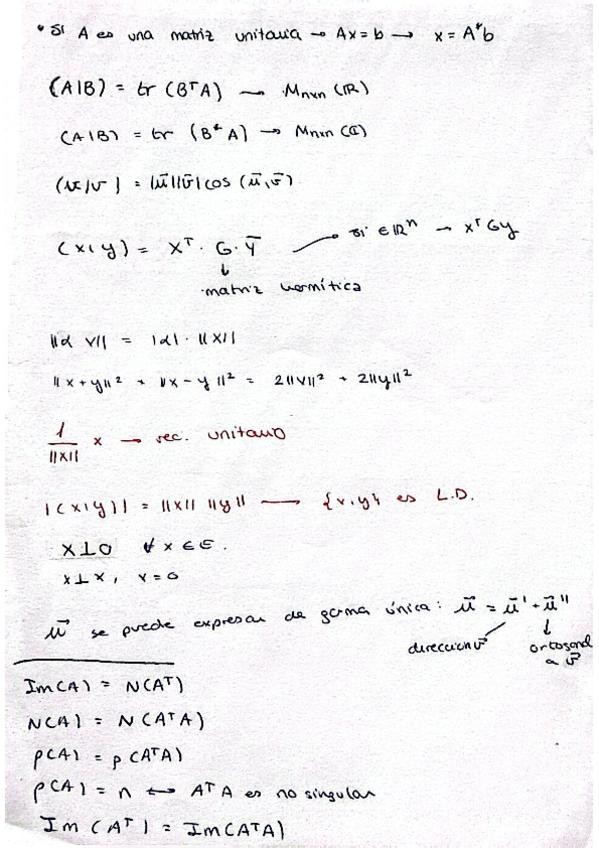 * Si A es una matriz unitaria → Ax = b → x = A*b
(A|B) = tr (BᵀA) → Mnxn (ℝ)
(A|B) = tr (B*A) → Mnxn (ℂ)
(u|v) = |u⃗||v⃗| cos (u⃗,v⃗)
(x|y) = Xᵀ · G · Ȳ → si ∈ ℝⁿ → xᵀGy
↓
matriz hermítica
||α v|| = |α| · ||x||
||x+y||² + ||x-y||² = 2||v||² + 2||y||²
1/||x|| x → vec. unitario
|(x|y)| = ||x|| ||y|| → {x,y} es L.D.
x⊥0 ∀ x ∈ E.
x⊥x, x=0
u⃗ se puede expresar de forma única: u⃗ = u⃗' + u⃗''
dirección v⃗ ortogonal
a v⃗
Im(A) = N(Aᵀ)
N(A) = N(AᵀA)
ρ(A) = ρ(AᵀA)
ρ(A) = n ↔ AᵀA es no singular
Im (Aᵀ) = Im(AᵀA)